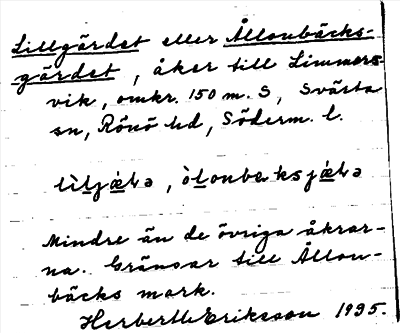 Lillgärdet eller Ållonbäcks-
gärdet, åker till Limmers-
vik, omkr. 150 m. S, Svärta
sn, Rönö hd, Söderm. l.
Mindre än de övriga åkrar-
na. Gränsar till Ållon-
bäcks mark.
Herbert Eriksson 1935.